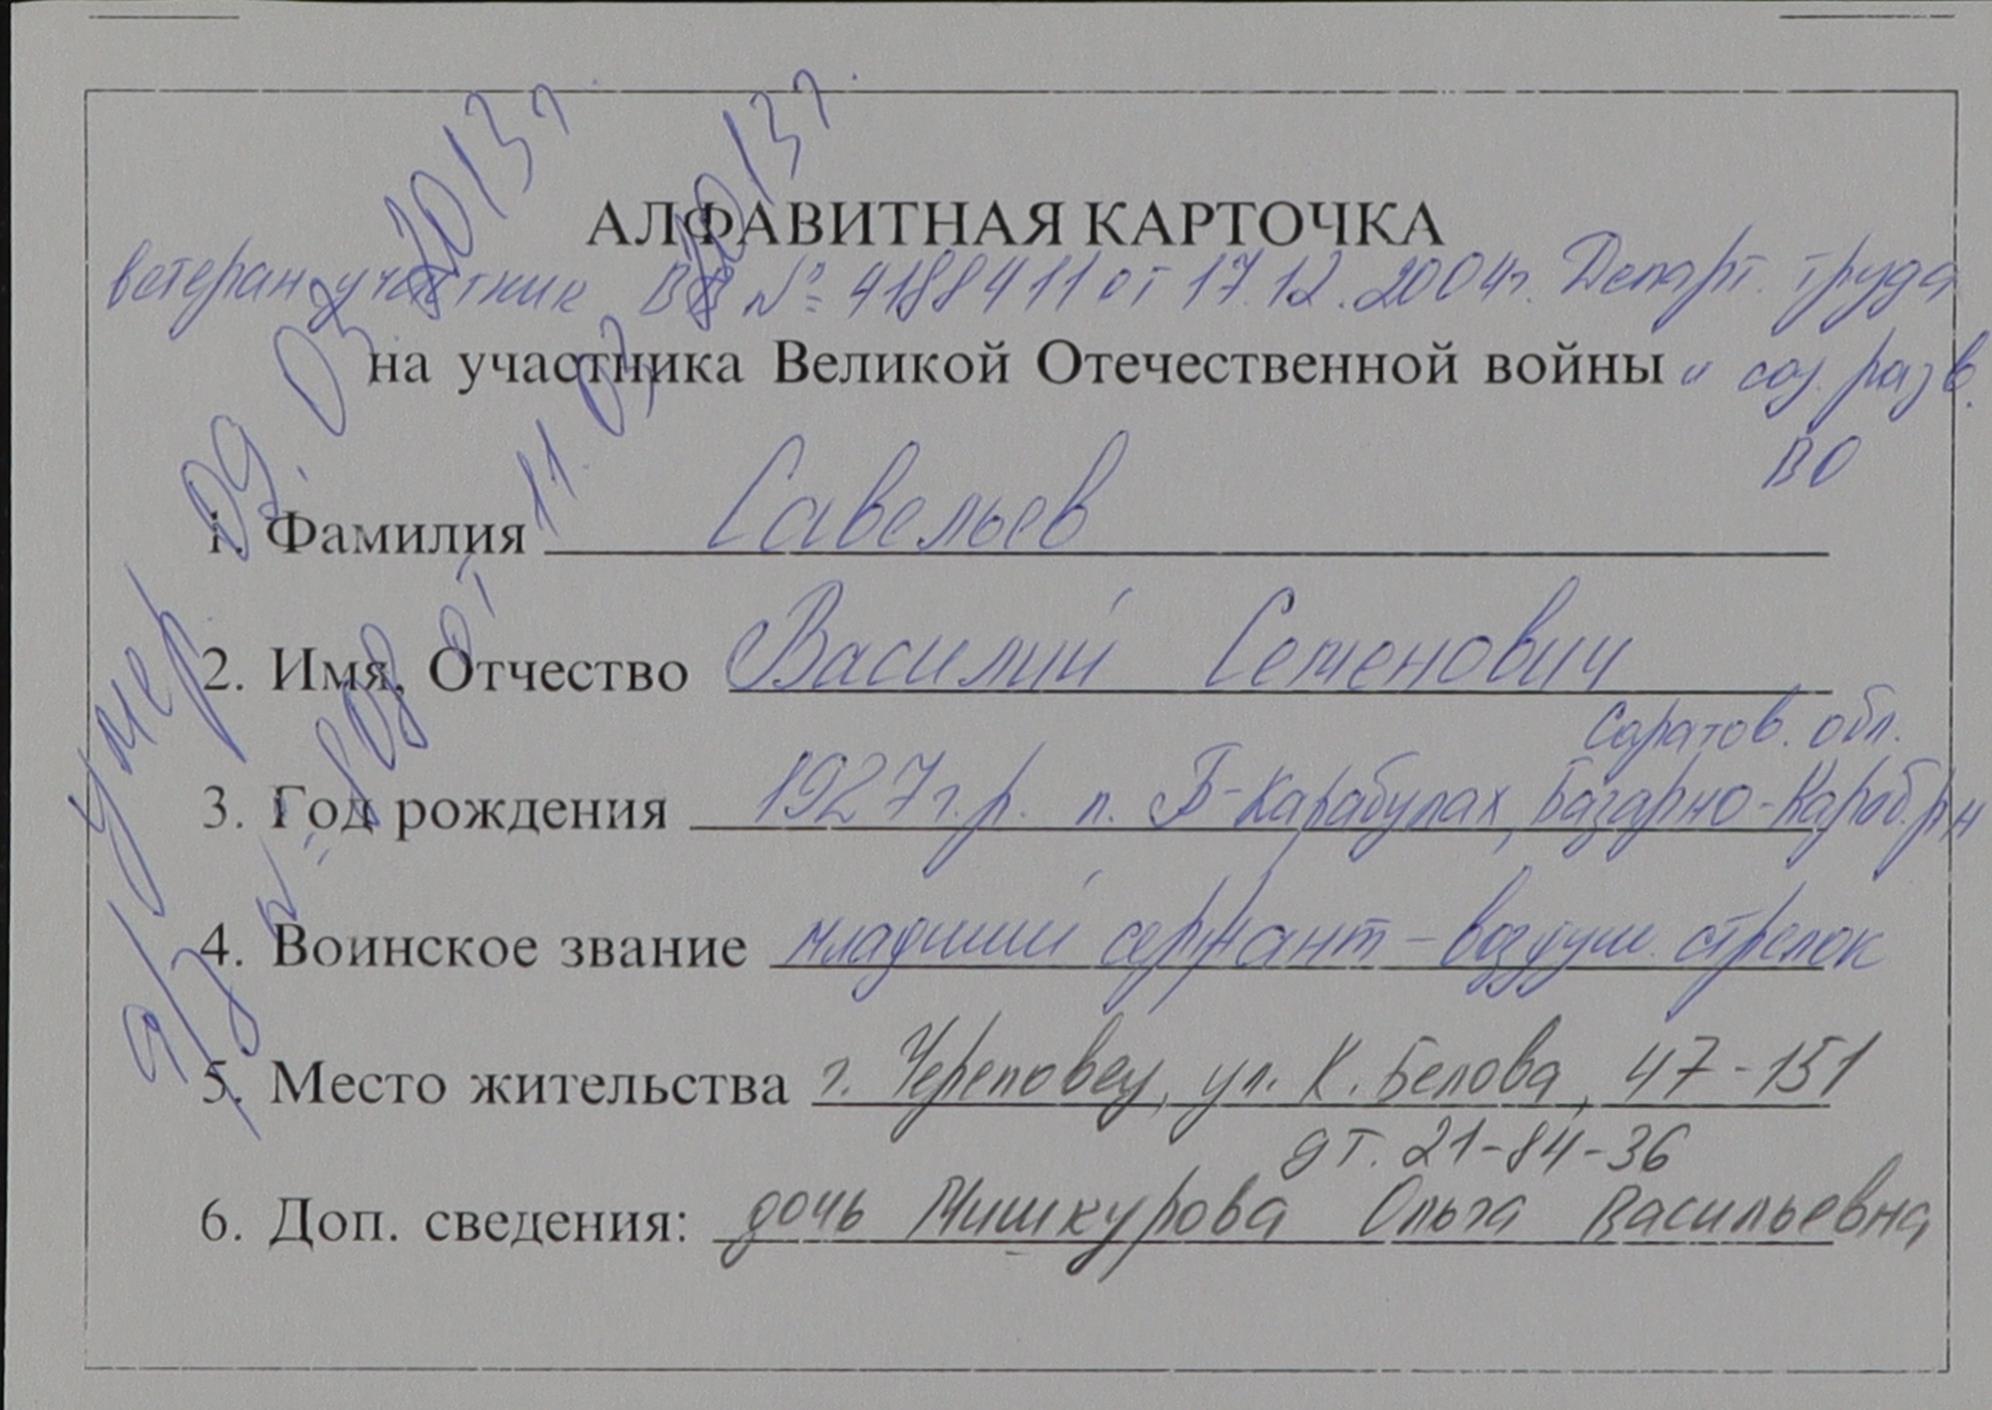 АЛФАВИТНАЯ КАРТОЧКА
ветеран участник ВВ № 4188411 от 17.12.2004г. Департ. труда
на участника Великой Отечественной войны и соц. разв.
ВО
1. Фамилия Савельев
2. Имя, Отчество Василий Семенович
Саратов. обл.
3. Год рождения 1927г.р. п. Б-Карабулах, Базарно-Караб. р-н
4. Воинское звание младший сержант - воздуш. стрелок
5. Место жительства г. Череповец, ул. К. Белова, 47-151
дт. 21-84-36
6. Доп. сведения: дочь Мишкурова Ольга Васильевна
умер 09. 03 2013г.
от 11. 03 2013г.